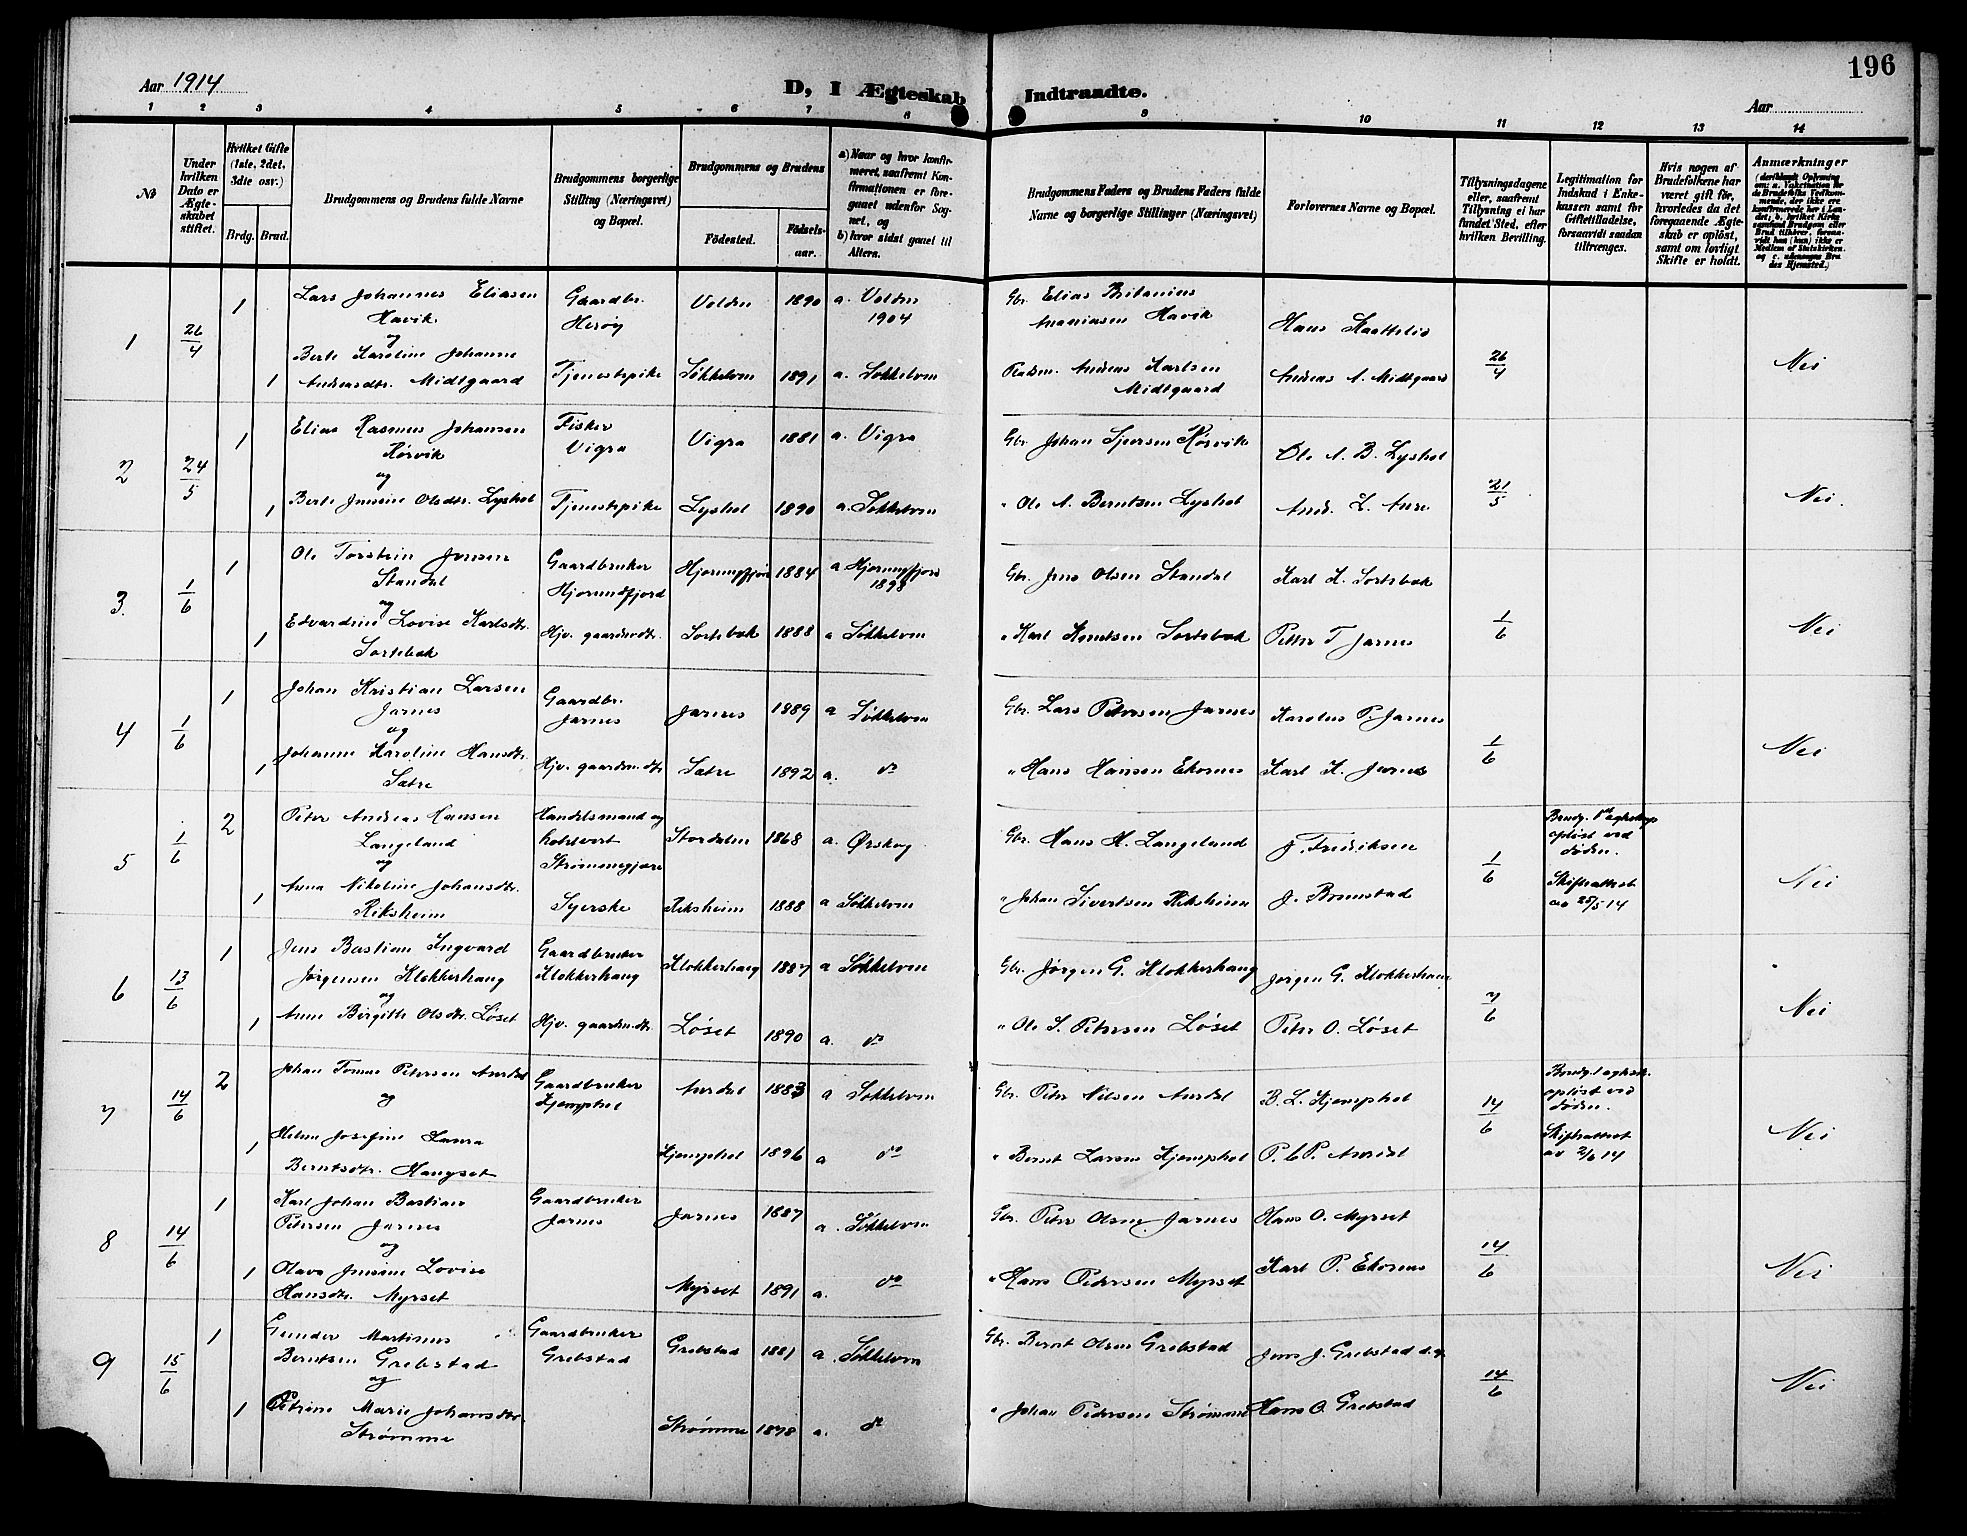 196
Aar 1914
D, I Ægteskab Indtraadte.
Aar
1 2 3 4 5 6 7 8 9 10 11 12 13 14
№
Under hvilken Dato er Ægteskabet stiftet.
Hvilket Gifte (1ste, 2det, 3die osv.)
Brdg. Brud.
Brudgommens og Brudens fulde Navne
Brudgommens borgerlige Stilling (Næringsvei) og Bopæl.
Brudgommens og Brudens
Födested.
Födselsaar.
a) Naar og hvor konfirmeret, saafremt Konfirmationen er foregaaet udenfor Sognet, og
b) hvor sidst gaaet til Alters.
Brudgommens Faders og Brudens Faders fulde Navne og borgerlige Stillinger (Næringsvei)
Forlovernes Navne og Bopæl.
Tillysningsdagene eller, saafremt Tillysning ei har fundet Sted, efter hvilken Bevilling.
Legitimation for Indskud i Enkekassen samt for Giftetilladelse, forsaavidt saadan tiltrænges.
Hvis nogen af Brudefolkene har været gift før, hvorledes da det foregaaende Ægteskab er oplöst, samt om lovligt Skifte er holdt.
Anmærkninger
1 26/4 1 Lars Johannes Eliasen Havik Gaardbr. Herøy Volden 1890 a. Volden 1904 Gbr. Elias Britanius Ananiasen Havik Hans Kaattelid 26/4 Nei
og
1 Berte Karoline Johanne Andreasdtr. Midtgaard Tjenestepike Søkkelven 1891 a. Søkkelven Andreas Karlsen Midtgaard Andreas A. Midtgaard
2 24/5 1 Elias Rasmus Johansen Rørvik Fisker Vigra Vigra 1881 a. Vigra Gbr. Johan Sjursen Rørvik Ole A. B. Lyshol 21/5 Nei.
og
1 Berte Jensine Olsdtr. Lyshol Tjenestepike Lyshol 1890 a. Søkkelven " Ole A. Berntsen Lyshol And. L. Aure
3. 1/6 1 Ole Torstein Jensen Standal Gaardbruker Hjørundfjord Hjørungfjord 1884 a Hjørungfjord 1898 Gbr. Jens Olsen Standal Karl K. Sortebak 1/6 Nei
og
1 Edvardine Lovise Karlsdtr. Sortebak Hjv. gaardmdtr. Sortebak 1888 a Søkkelven " Karl Knutsen Sortebak Petter T Jarnes
4 1/6 1 Johan Kristian Larsen Jarnes Gaardbr. Jarnes Jarnes 1889 a Søkkelven Gbr. Lars Petersen Jarnes Karolus P. Jarnes 1/6 Nei
og
1 Johanne Karoline Hansdtr. Sætre Hjv. gaardm.dtr Sætre 1892 a. do " Hans Hansen Ekornes Karl K. Jarnes
5 1/6 2 Peter Andreas Hansen Langeland Handelsmand og hotelvert Strømmegjære Stordalen 1868 a. Ørskog Gbr. Hans H. Langeland J. Fredriksen 1/6 Brudg. 1ste egteskap opløst ved døden. Skifteattest av 25/5 14 Nei
og
1 Anna Nikoline Johansdtr. Riksheim Syerske Riksheim 1888 a Søkkelven " Johan Sivertsen Riksheim J. Brunstad
6 13/6 1 Jens Bastian Ingvard Jørgensen Klokkerhaug Gaardbruker Klokkerhaug Klokkerhaug 1887 a Søkkelven Gbr. Jørgen G. Klokkerhaug Jørgen G. Klokkerhaug 7/6 Nei
og
1 Anne Birgitte Olsdtr. Løset Hjv. gaardm.dtr. Løset 1890 a. do " Ole S. Petersen Løset Peter O. Løset
7 14/6 2 Johan Tomas Petersen Aurdal Gaardbruker Hjemphol Aurdal 1883 a Søkkelven Gbr. Peter Nilsen Aurdal B. L. Hjemphol 14/6 Brudg. 1 egtesk. opløst ved døden. Skifteattest av 2/6 14 Nei
og
1 Josefine Laura Berntsdtr. Haugset Hjemphol 1896 a do " Bernt Larsen Hjemphol P. C P. Aurdal
8 14/6 1 Karl Johan Bastian Petersen Jarnes Gaardbruker Jarnes Jarnes 1887 a. Søkkelven Gbr. Peter Olsen Jarnes Hans O. Myrset 14/6 Nei
og
1 Olava Jensine Lovise Hansdtr. Myrset Myrset 1891 a. do " Hans Pedersen Myrset Karl P. Ekornes
9 15/6 1 Gunder Martinus Berntsen Grebstad Gaardbruker Grebstad Grebstad 1881 a. Søkkelven Gbr. Bernt Olsen Grebstad Jens J. Grebstad d.y. 14/6 Nei
og
1 Petrine Marie Johansdtr. Strømme Strømme 1878 a. do " Johan Pedersen Strømme Hans O. Grebstad